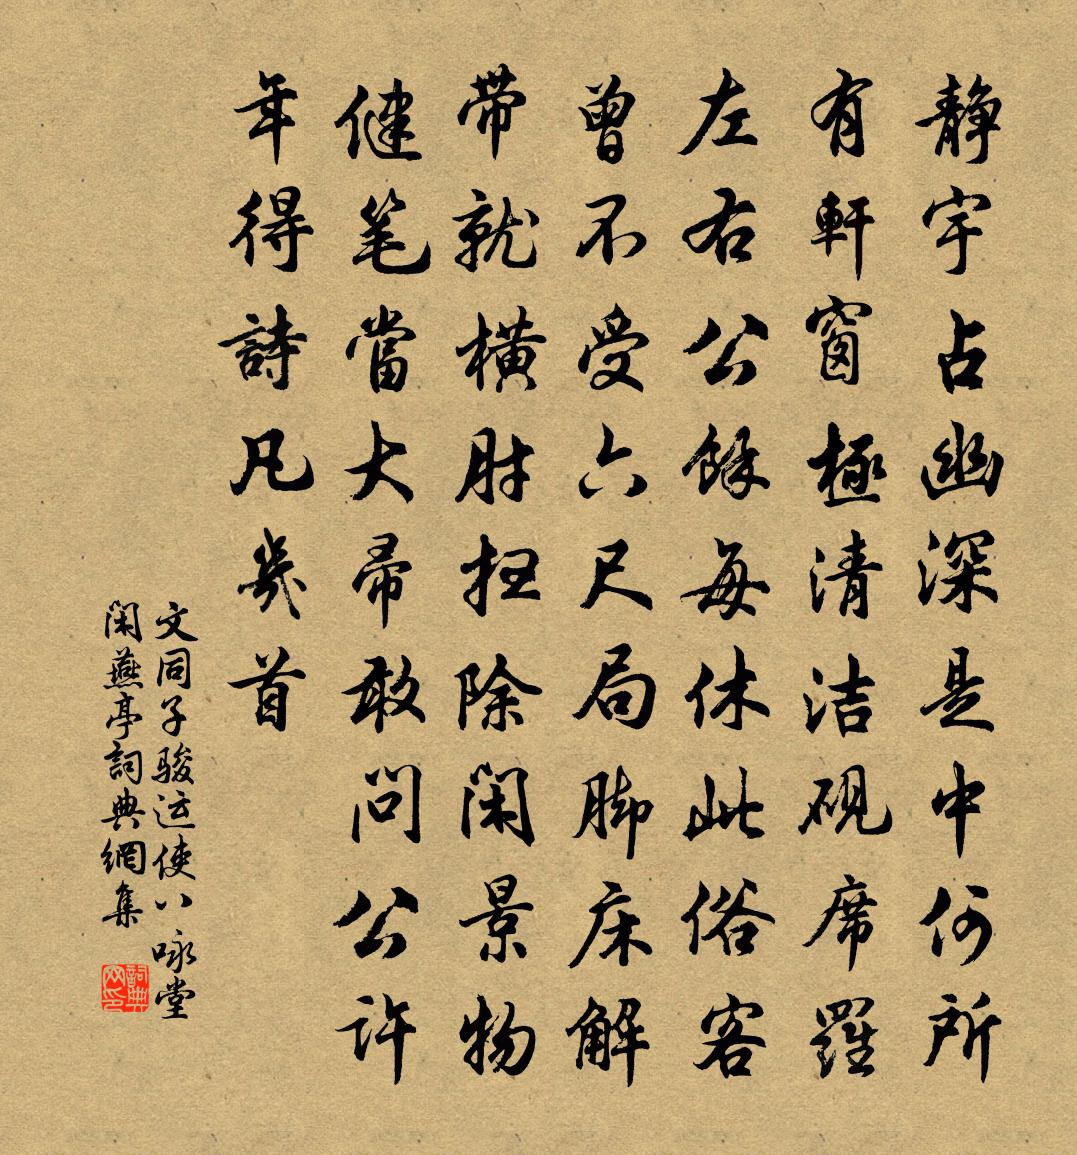 静宇占幽深是中何所
有軒窗極清洁砚席羅
左右公餘每休此俗客
曾不受六尺局脚床解
带就横肘扫除闲景物
健笔當大帚敢问公许
年得詩凡幾首
文同子骏运使八咏堂
闲燕亭詞典網集
詞典